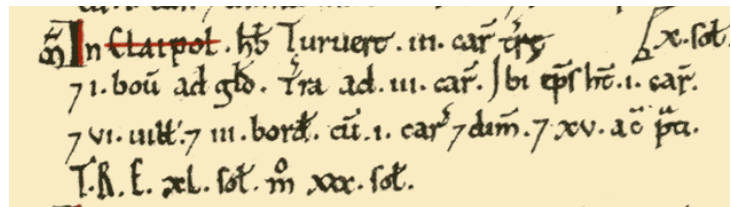 M̃ In Claipol . hb̄ Turuert . iii . car̄ tr̄ę x . sol̄.
⁊ i . bou᷑ ad gld̄ . Tr̄a ad . iii . car̄ . Ibi ep̄s ht̄ . i . car̄ .
⁊ vi . uill̄ . ⁊ iii . bord̄ . cū . i . car̄ ⁊ dim̄ . ⁊ xv . ac̄ p̄ti .
T . R . E . xl . sol̄ . m̊ xxx . sol̄ .